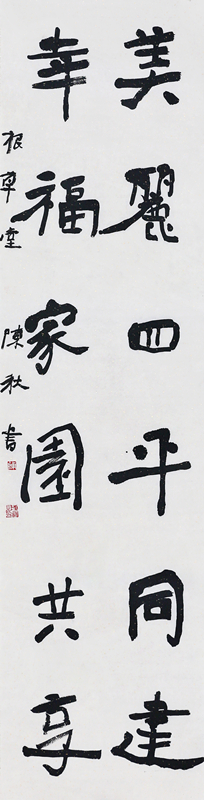 美麗四平同建
幸福家園共享
根草堂 陳秋 書